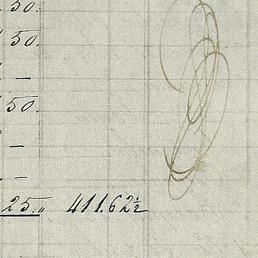 50.
50.
—
50.
—
—
25.„ 411.62½